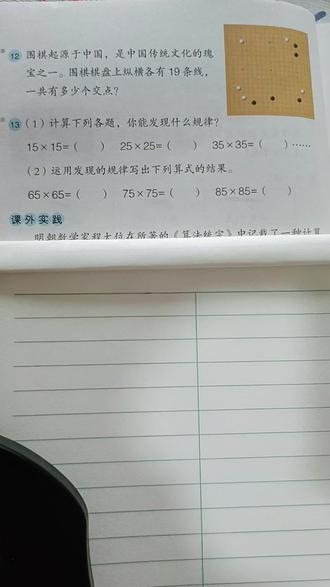 * 12 围棋起源于中国，是中国传统文化的瑰
宝之一。围棋棋盘上纵横各有 19 条线，
一共有多少个交点？
* 13 （1）计算下列各题，你能发现什么规律？
15×15=（ ） 25×25=（ ） 35×35=（ ）……
（2）运用发现的规律写出下列算式的结果。
65×65=（ ） 75×75=（ ） 85×85=（ ）
课外实践
明朝数学家程大位在所著的《算法统宗》中记载了一种计算